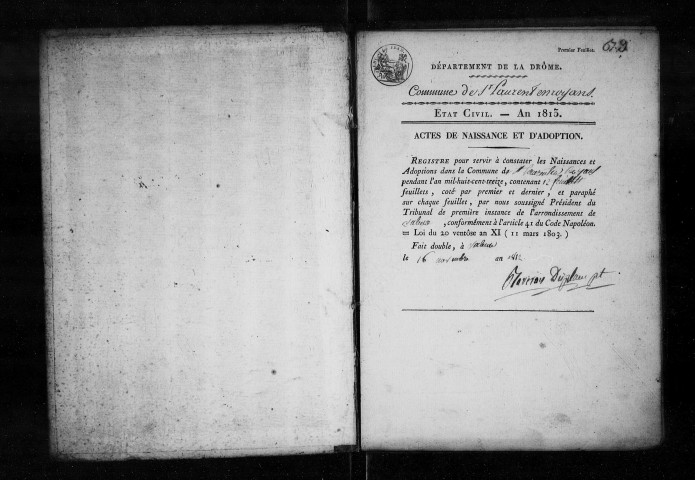 Premier Feuillet.
DÉPARTEMENT DE LA DRÔME.
Commune de St Laurent en royans
ETAT CIVIL. — AN 1813.
ACTES DE NAISSANCE ET D'ADOPTION.
REGISTRE pour servir à constater les Naissances et
Adoptions dans la Commune de St Laurent en royans
pendant l'an mil-huit-cent-treize, contenant
feuillets, coté par premier et dernier, et paraphé
sur chaque feuillet, par nous soussigné Président du
Tribunal de première instance de l'arrondissement de
Valence, conformément à l'article 41 du Code Napoléon.
= Loi du 20 ventôse an XI ( 11 mars 1803. )
Fait double, à Valence
le 16 novembre an 1812